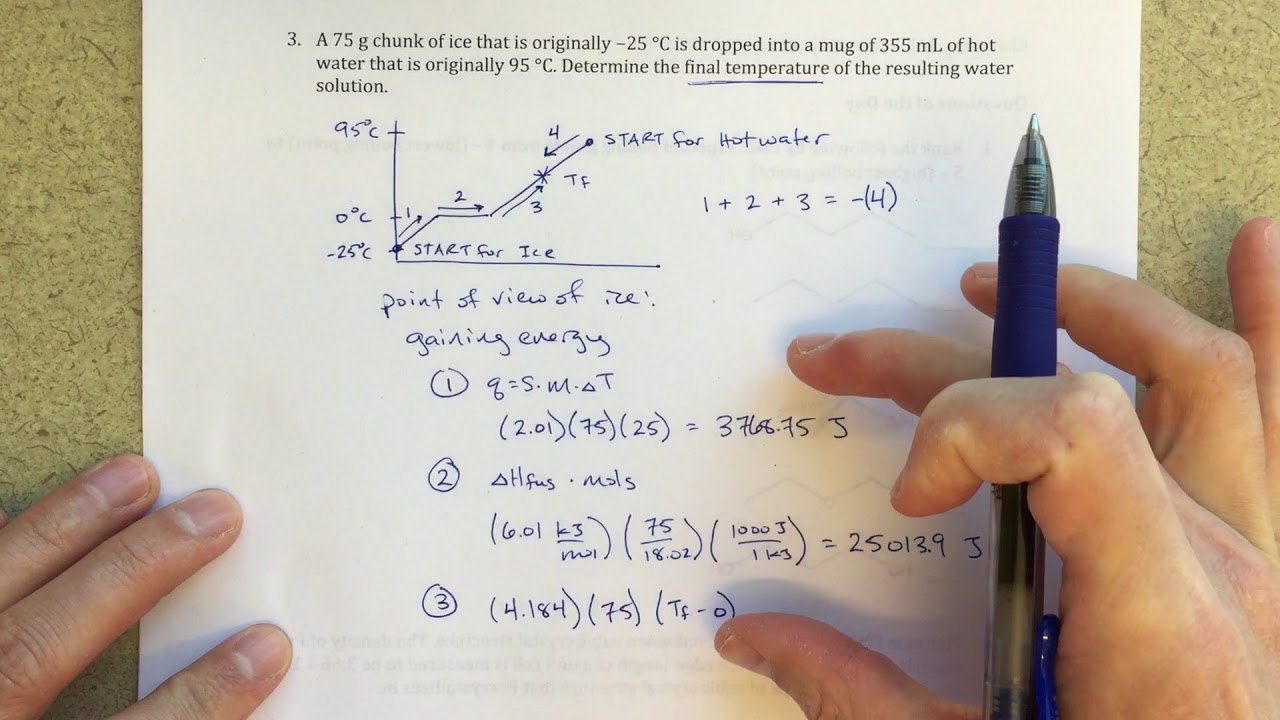 3. A 75 g chunk of ice that is originally −25 °C is dropped into a mug of 355 mL of hot
water that is originally 95 °C. Determine the final temperature of the resulting water
solution.
95°C
4
START for Hot water
Tf
2
3
1
0°C
-25°C
START for Ice
1 + 2 + 3 = -(4)
point of view of ice:
gaining energy
① q = S·m·ΔT
(2.01)(75)(25) = 3768.75 J
② ΔHfus · mols
(6.01 kJ/mol) (75/18.02) (1000 J/1 kJ) = 25013.9 J
③ (4.184)(75)(Tf - 0)